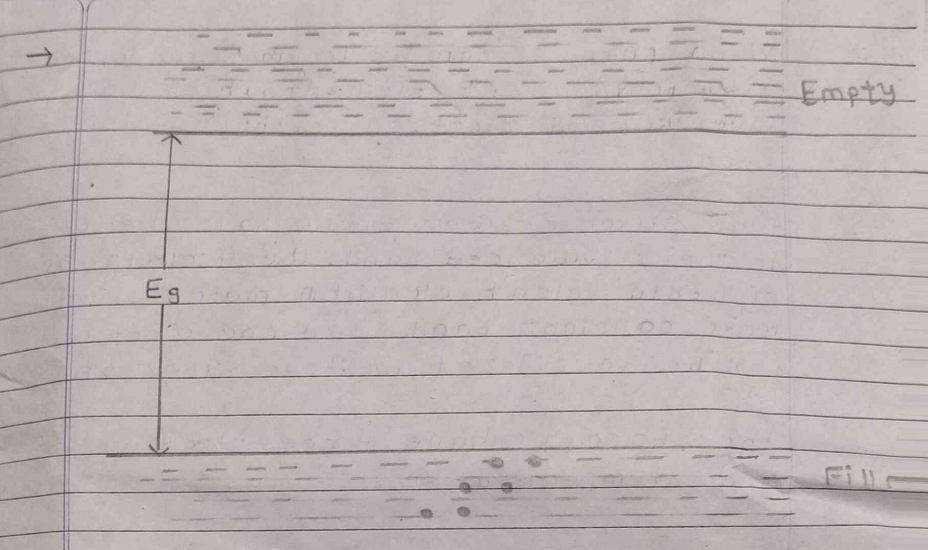 Empty
Eg
Fill